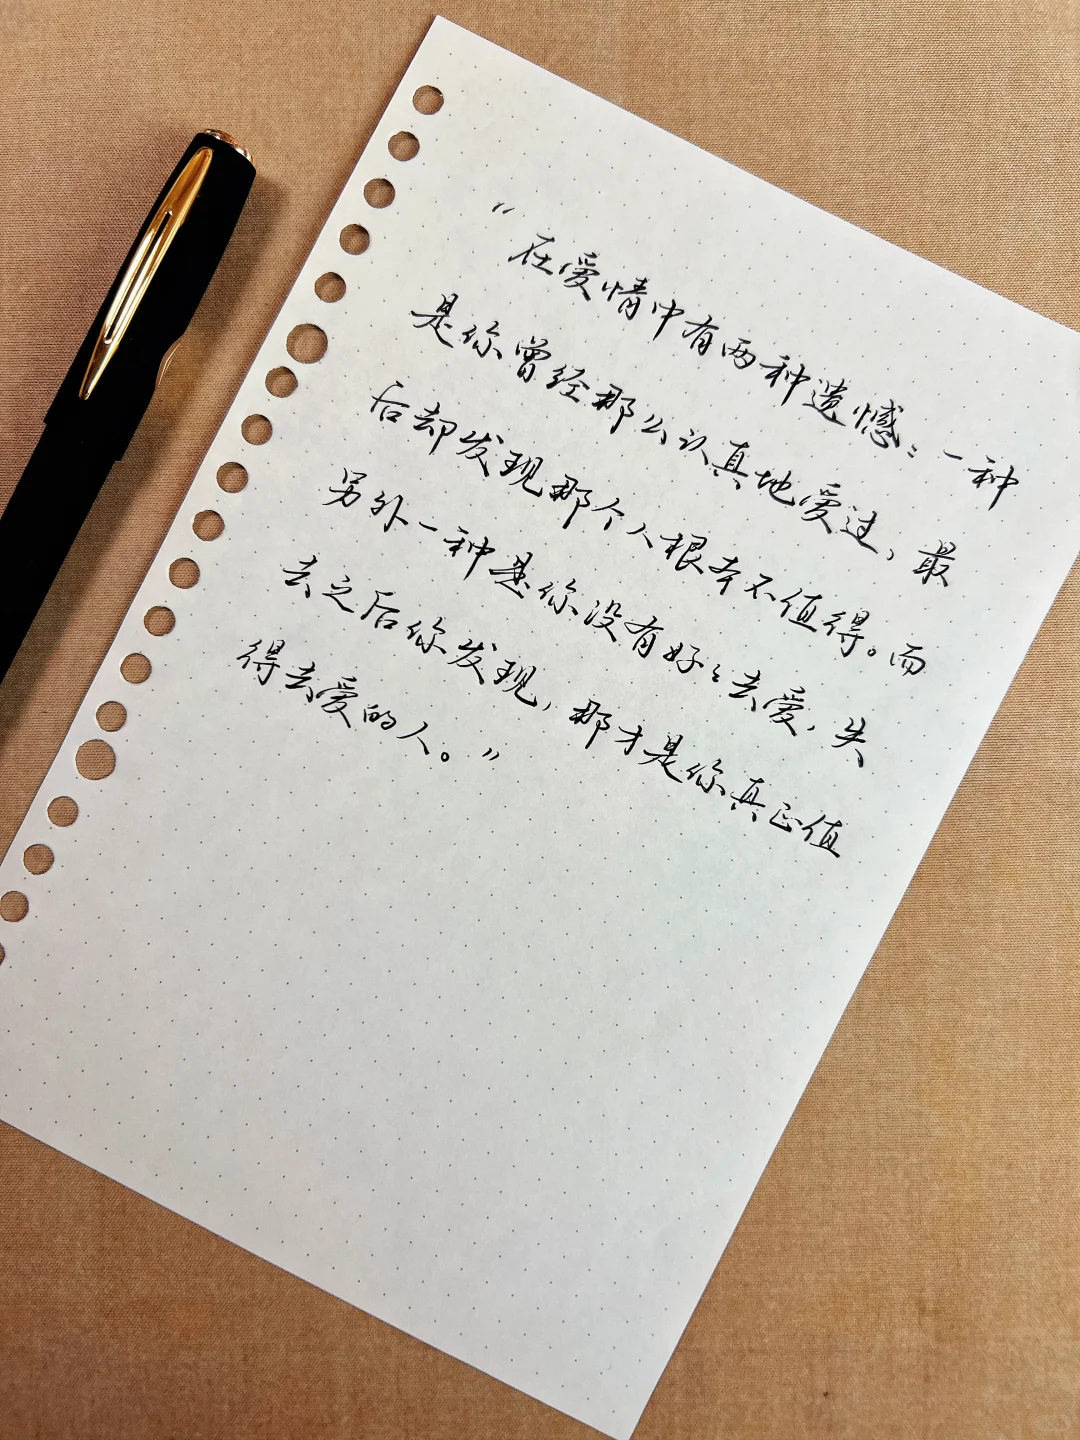 “在爱情中有两种遗憾：一种
是你曾经那么认真地爱过，最
后却发现那个人根本不值得。而
另外一种是你没有好々去爱，失
去之后你发现，那才是你真正值
得去爱的人。”